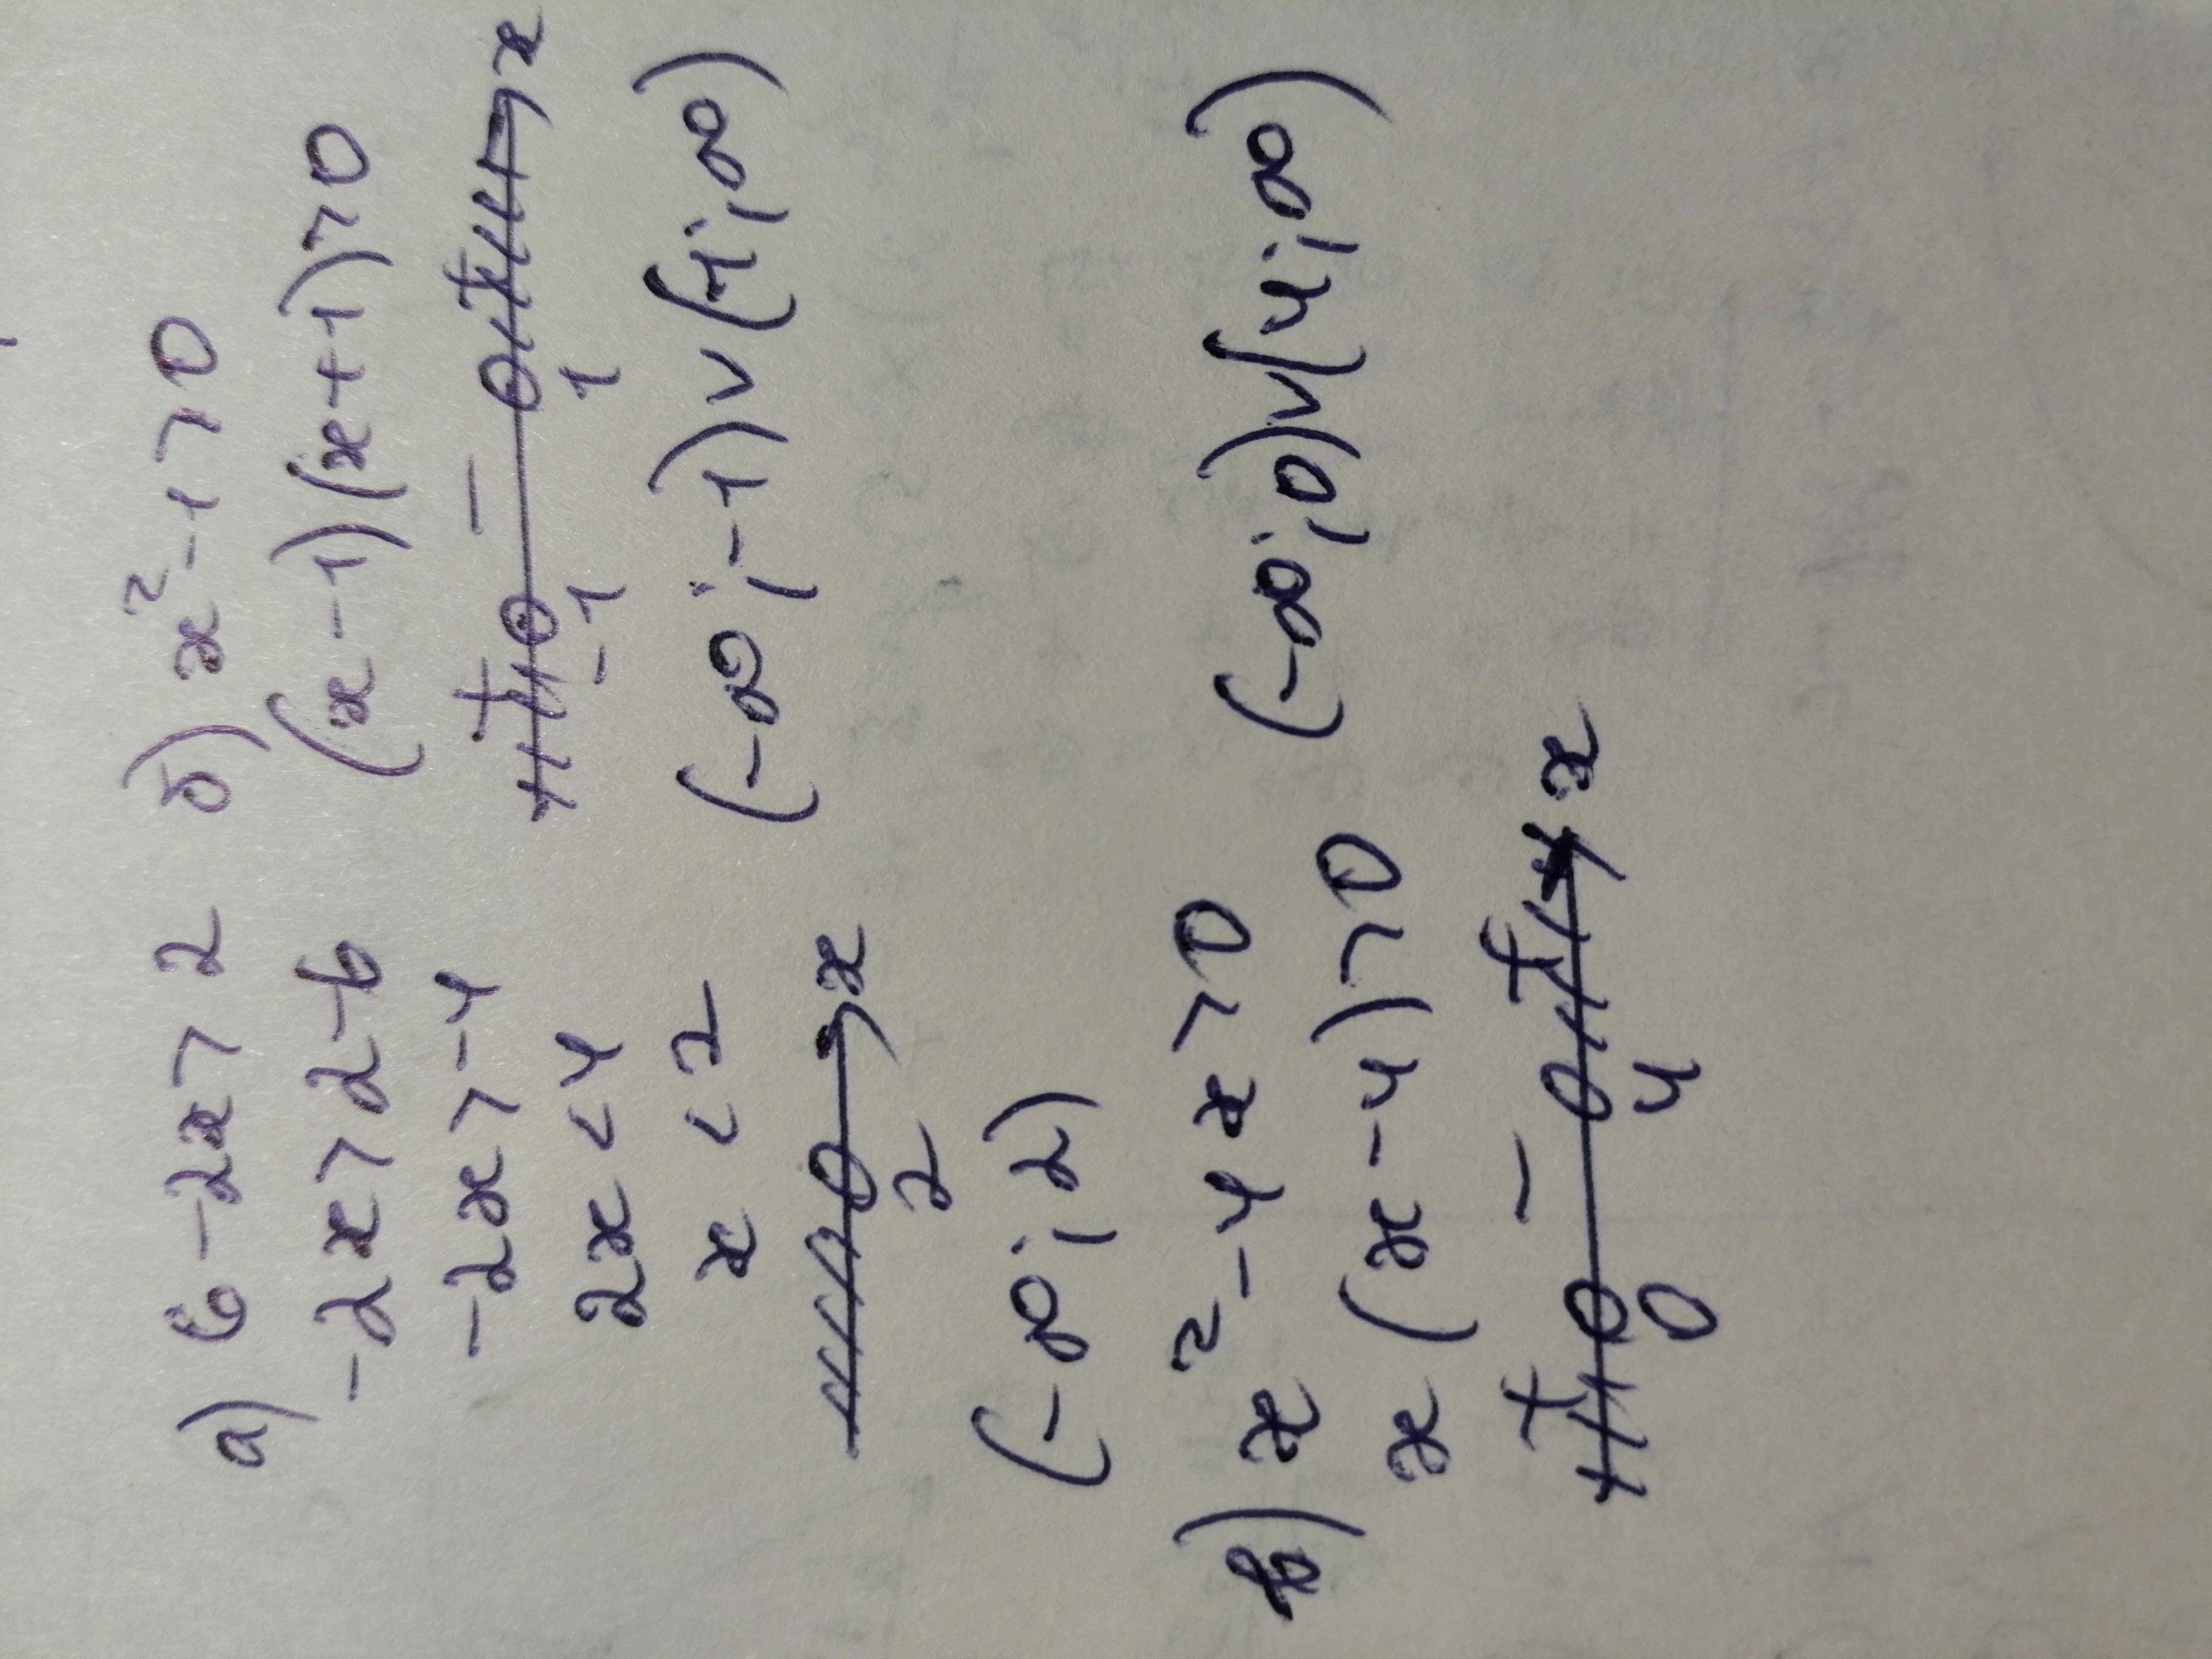 а) 6 - 2x > 2
-2x > 2-6
-2x > -4
2x < 4
x < 2
2 x
(-∞; 2)
б) x² - 1 > 0
(x-1)(x+1) > 0
+ - +
-1 1 x
(-∞; -1) ∪ (1; ∞)
в) x² - 4x > 0
x(x-4) > 0
+ - +
0 4 x
(-∞; 0) ∪ (4; ∞)